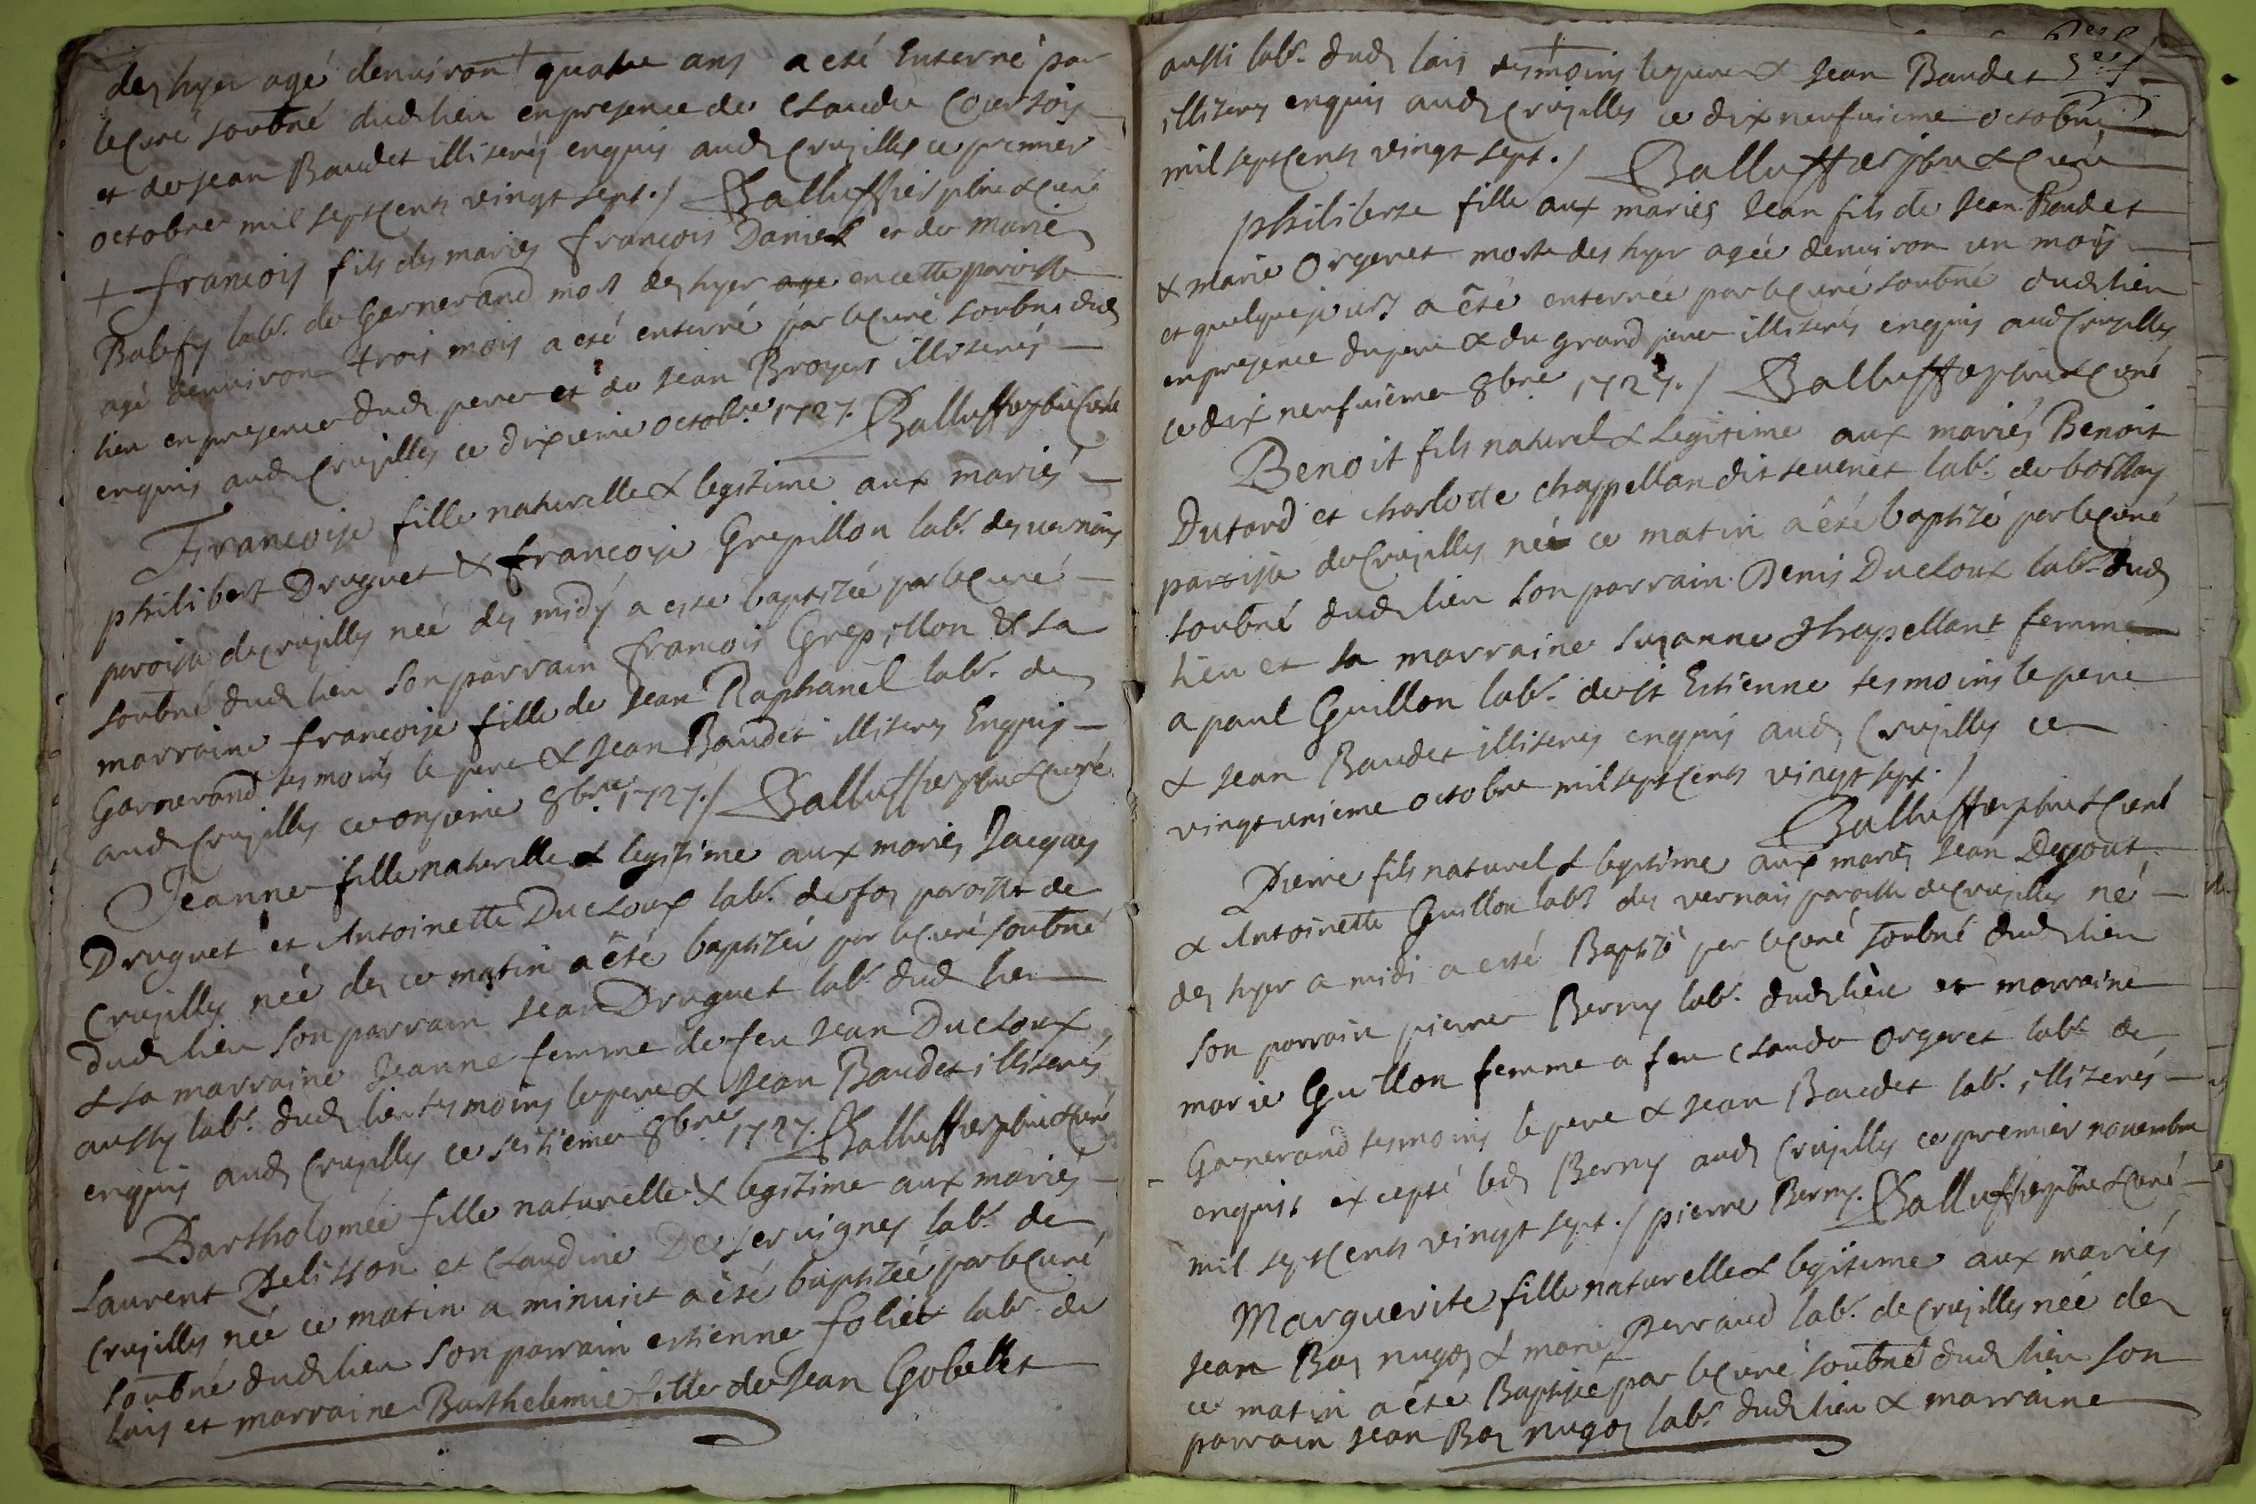 des hyer agé denviron quatre ans a eté Enterré par
le Curé soubné dud lieu en presence de Claude Courtois
et de Jean Baudet illiterés enquis aud Crusilles ce premier
octobre mil sept Cents vingt sept./ Balluffier pbre & curé
+ francois fils des mariés francois Daniel et de Marie
labr. de Garnerand mort des hyer age en cette paroisse
agé denviron trois mois a eté enterré par le Curé soubné dud
lieu en presence dud. pere et de Jean Broyer illiterés
enquis aud Crusilles ce dixieme octobre 1727. Balluffier pbre Curé
Francoise fille naturelle & legitime aux mariés
philibert Druguet & francoise Grepillon labr. des vernais
paroisse de Crusilles neé des midy a esté baptizée par le Curé
soubné dud lieu son parrain francois Grepillon & sa
marraine francoise fille de Jean Raphanel labr. de
Garnerand tesmoins le pere & Jean Baudet illiteres Enquis
aud Crusilles ce onzieme 8bre. 1727./ Balluffier pbre & curé
Jeanne fille naturelle & legitime aux mariés Jacques
Druguet et Antoinette Ducloux labr. de paroisse de
Crusilles neé des ce matin a été baptizeé par le curé soubné
dud lieu son parrain Jean Druguet labr. dud lieu
& sa marraine Jeanne femme de feu Jean Ducloux
aussy labr. dud lieu tesmoins le pere & Jean Baudet illiterés
enquis aud Crusilles ce seitieme 8bre. 1727. Balluffier pbre & curé
Bartholomée fille naturelle & legitime aux mariés
Laurent Pelisson et Claudine De servignes labr. de
Crusilles neé ce matin a minuit a été baptizeé par le Curé
soubné dud lieu son parrain estienne foliet labr. de
lais et marraine Barthelemie fille de Jean Gobellet
aussi labr. dud lais tesmoins le pere & Jean Baudet
illiteres enquis aud Crusilles ce dix neufuieme octobre
mil sept Cents vingt sept./ Balluffier pbre & Curé
philiberte fille aux mariés Jean fils de Jean Baudet
& marie Orgeret morte des hyer ageé denviron un mois
et quelque jours a été enterreé par le Curé soubné dud lieu
en presence du pere & du grand pere illiterés enquis aud Crusilles
ce dix neufuieme 8bre 1727./ Balluffier pbre & Curé
Benoit fils naturel & Legitime aux mariés Benoit
Dutard et charlotte chappellan dit sevenet labr. de
paroisse de Crusilles né ce matin a été baptizé par le Curé
soubné dud lieu son parrain Denis Ducloux labr. dud
lieu et sa marraine suzanne Chapellant femme
a paul Guillon labr. de st Estienne tesmoins le pere
& Jean Baudet illiteres enquis aud Crusilles ce
vingt unieme octobre mil sept Cents vingt sept./
Balluffier pbre & Curé
Pierre fils naturel & legitime aux mariés Jean Degout
& Antoinette Guillon labr. des vernais paroisse de Crusilles né
des hyer a midi a esté Baptizé par le Curé soubné dud lieu
son parrain pierre Berny labr. dud lieu et marraine
marie Guillon femme a feu Claude Orgeret labr. de
Garnerand tesmoins le pere & Jean Baudet labr. illiterés
enquis excepté led Berny aud Crusilles ce premier novembre
mil sept Cents vingt sept./ pierre Berny. Balluffier pbre & Curé
Marguerite fille naturelle & legitime aux mariés
Jean Bas & marie Perraud labr. de Crusilles neé des
ce matin a été Baptizeé par le curé soubné dud lieu son
parrain Jean Bas labr. dud lieu & marraine